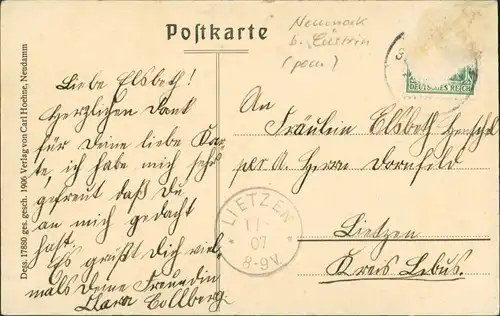 Postkarte
Neumark
b. Cüstrin
(pom)
DEUTSCHES REICH
Desg. 17880 ges. gesch. 1906 Verlag von Carl Hoehne, Neudamm
Liebe Elsbeth!
Herzlichen Dank
für Deine liebe Kar-
te, ich habe mich sehr
gefreut daß Du
an mich gedacht
hast.
Es grüßt Dich viel-
mals Deine Freundin
Clara Collberg.
An
Fräulein Elsbeth Henschel
per A. Herrn Dornfeld
Lietzen
Kreis Lebus.
LIETZEN
07
8-9V.